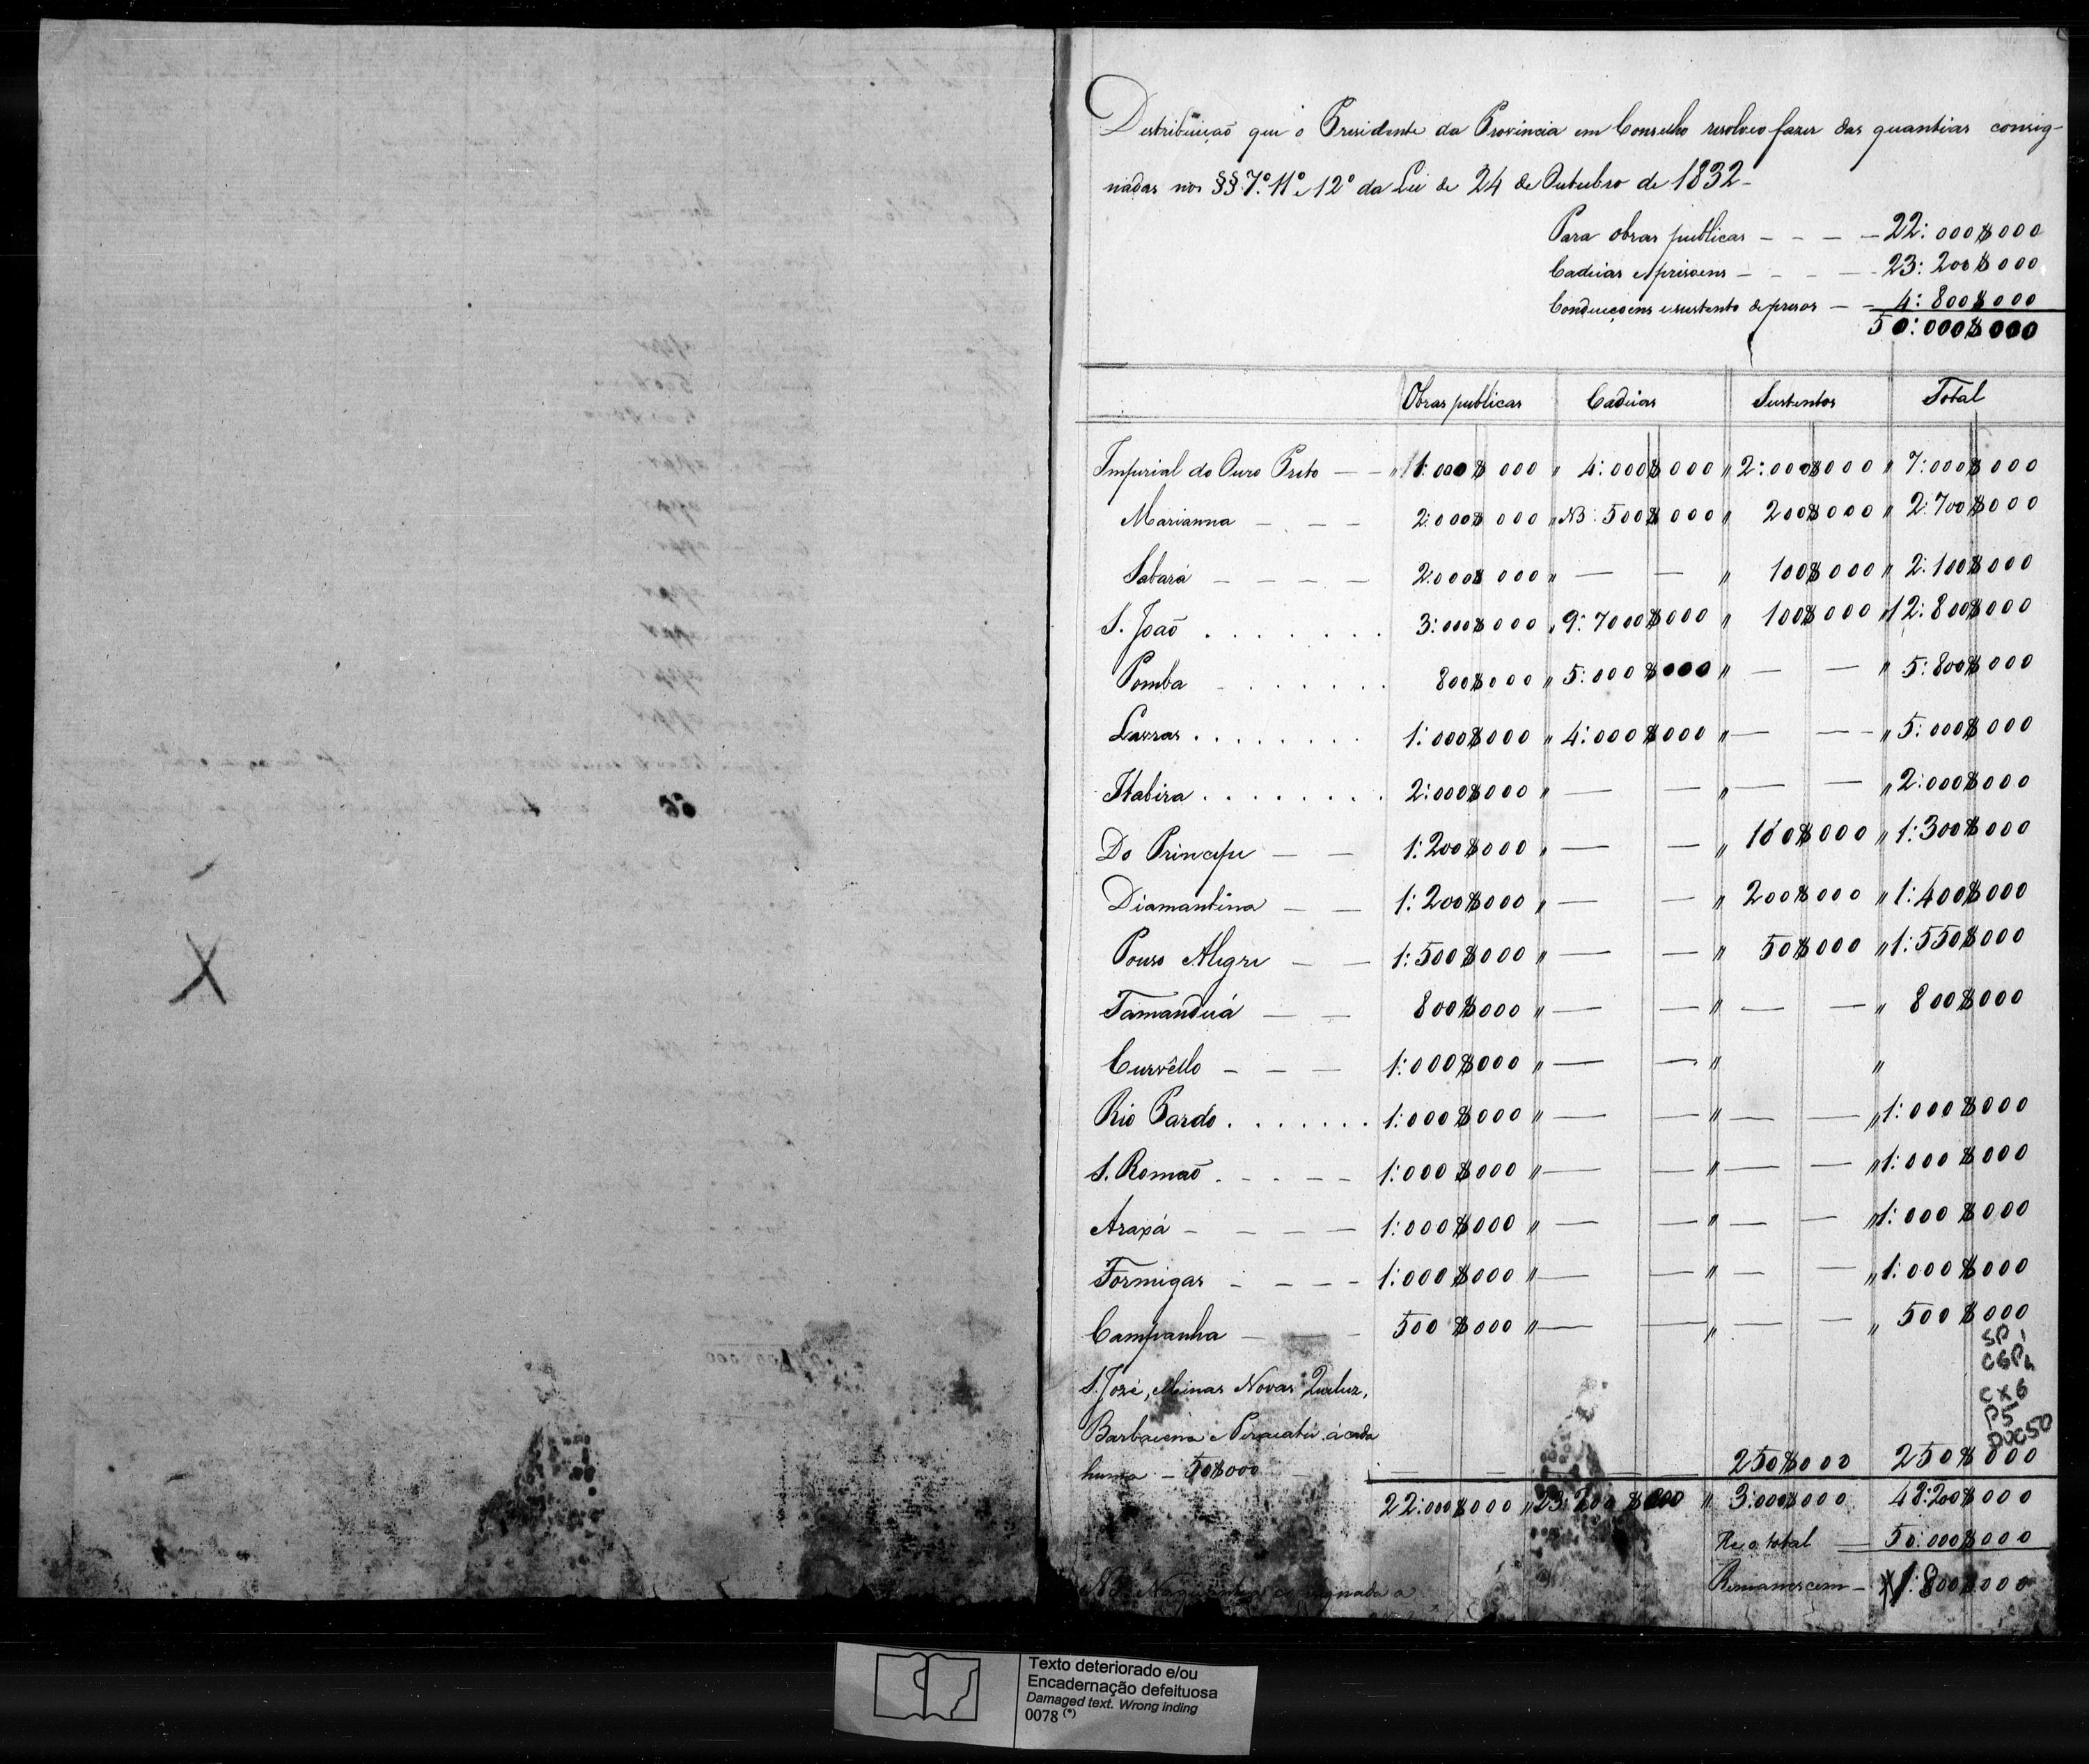 Destribuiçaõ que o Presidente da Provincia em Conselho resolveo fazer das quantias consig-
nadas nos §§ 7º. 11º e 12º da Lei de 24 de Outubro de 1832 -
Para obras publicas - - - - 22:000$000
Cadeias e prisoens - - - - 23:200$000
Conducçoens e sustento de presos - - 4:800$000
50:000$000
Obras publicas Cadeias Sustentos Total
Imperial do Ouro Preto - - " 1:000$000 " 4:000$000 " 2:000$000 " 7:000$000
Marianna - - - 2:000$000 " NB: 500$000 " 200$000 " 2:700$000
Sabará - - - - 2:000$000 " - - " 100$000 " 2:100$000
S. Joaõ . . . . . . . 3:000$000 " 9:700$000 " 100$000 " 12:800$000
Pomba - . . . . . . 800$000 " 5:000$000 " - - " 5:800$000
Lavras . . . . . . . . 1:000$000 " 4:000$000 " - - " 5:000$000
Itabira . . . . . . . . 2:000$000 " - - " - - " 2:000$000
Do Principe - - 1:200$000 " - - " 100$000 " 1:300$000
Diamantina - - 1:200$000 " - - " 200$000 " 1:400$000
Pouso Alegre - - 1:500$000 " - - " 50$000 " 1:550$000
Tamanduá - - 800$000 " - - " - - " 800$000
Curvêllo - - - 1:000$000 " - - " "
Rio Pardo . . . . . . . 1:000$000 " - - " - - " 1:000$000
S. Romaõ . - - - - 1:000$000 " - - " - - " 1:000$000
Araxá - - - - 1:000$000 " - - " - - " 1:000$000
Formigas - - - - 1:000$000 " - - " - - " 1:000$000
Campanha - - - 500$000 " - - " - - " 500$000
SP
CGP
CX6
P5
DOC50
S. José, Minas Novas Queluz,
Barbacena e Peracatú á cada
huma - 50$000 - - - - - 250$000 250$000
22:000$000 " 23:200$000 " 3:000$000 48:200$000
total - 50:000$000
Remanescem - 1:800$000
NB.
X
Texto deteriorado e/ou
Encadernação defeituosa
Damaged text. Wrong inding
0078 (*)